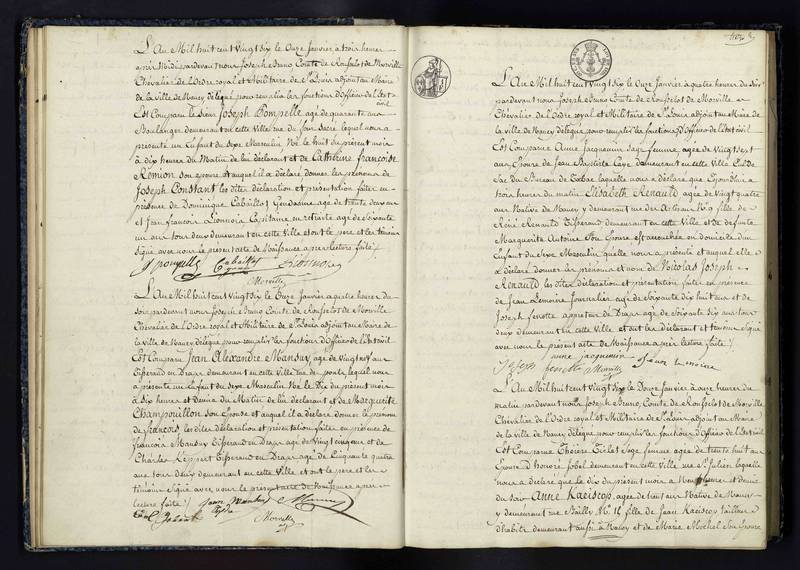 L'An Mil huit cent Vingt Six le Onze Janvier à trois heures
après Midi pardevant nous Joseph Bruno Comte de Rousselot de Morville
Chevalier de l'Ordre royal et Militaire de St Louis adjoint au Maire
de la Ville de Nancy délégué pour remplir les fonctions d'Officier de l'État
civil
Est Comparu le Sieur Joseph Pompelle agé de quarante ans
Boulanger demeurant en cette Ville rue du four Sacré lequel nous a
présenté un Enfant du Sexe Masculin Né le huit du présent mois
à dix heures du Matin de lui déclarant et de Catherine françoise
Remion son épouse et auquel il a déclaré donner les prénoms de
Joseph Constant les dites déclaration et présentation faites en
présence de Dominique Gendarme agé de trente deux ans
et Jean François Lionnois Capitaine en retraite agé de soixante
un ans tous deux demeurant en cette Ville et ont le père et les témoins
Signé avec nous le présent acte de Naissance après lecture faite
J pompelle
Lionnois
Morville
L'An Mil huit cent Vingt Six le Onze Janvier à quatre heures du
soir pardevant nous Joseph Bruno Comte de Rousselot de Morville
Chevalier de l'Ordre royal et Militaire de St Louis adjoint au Maire de
la Ville de Nancy délégué pour remplir les fonctions d'Officier de l'État civil
Est Comparu Jean Alexandre Mansuy, agé de Vingt Neuf ans
Tisserand en Draps demeurant en cette Ville rue des ponts, lequel nous
a présenté un Enfant du Sexe Masculin Né le Dix du présent mois
à Six heures et Demie du Matin de lui déclarant et de Marguerite
Champouillon Son épouse et auquel il a déclaré donner le prénom
de françois les dites déclaration et présentation faites en présence de
françois Mansuy Tisserand en Draps agé de Vingt cinq ans et de
Charles Leppert Tisserand en Draps agé de Cinquante quatre
ans tous deux demeurant en cette Ville et ont le père et les
témoins Signé avec nous le présent acte de Naissance après
lecture faite
Jean Mansuy
Morville
L'An Mil huit cent Vingt Six le Onze Janvier à quatre heures du Soir
pardevant nous Joseph Bruno Comte de Rousselot de Morville
Chevalier de l'Ordre royal et Militaire de St Louis adjoint au Maire de
la Ville de Nancy délégué pour remplir les fonctions d'Officier de l'État civil
Est Comparu Anne Jacquemin Sage femme, agée de Vingt Sept
ans Épouse de Jean Baptiste Caye demeurant en cette Ville Cul de
Sac du Bureau de Tabac laquelle nous a déclaré que Ejourd'hui à
trois heures du matin Elisabeth Renauld agée de Vingt quatre
ans Native de Nancy y demeurant rue des Artisans No 9 fille de
René Renauld Tisserand demeurant en cette Ville et de défunte
Marguerite Antoine Son Épouse est accouchée au domicile d'un
Enfant du Sexe Masculin quelle nous a présenté et auquel elle
a déclaré donner les prénoms et nom de Nicolas Joseph
Renauld les dites Déclaration et présentation faites en présence
de Jean Lemoine Journalier agé de Soixante dix huit ans et de
Joseph fenotte appreteur de Draps agé de Soixante dix ans tous
deux demeurant en cette Ville et ont les déclarant et témoins Signé
avec nous le présent acte de Naissance après lecture faite
anne jacquemin
Joseph fenotte
Jean Lemoine
Morville
L'An Mil huit cent Vingt Six le Douze Janvier à onze heures du
matin pardevant nous Joseph Bruno, Comte de Rousselot de Morville,
Chevalier de l'Ordre royal et Militaire de St Louis adjoint au Maire
de la Ville de Nancy délégué pour remplir les fonctions d'Officier de l'État civil
Est Comparue Thérèse Sage femme agée de trente huit ans
Épouse d'honoré Sobel demeurant en cette Ville rue St Julien, laquelle
nous a déclaré que le dix du présent mois à Neuf heures et demie
du Soir Anne Kaeiscop, agée de trent ans Native de Nancy
y demeurant rue Bailly No 14 fille de Jean Kaeiscop tailleur
d'habits demeurant aussi à Nancy et de Marie Michel Son Épouse